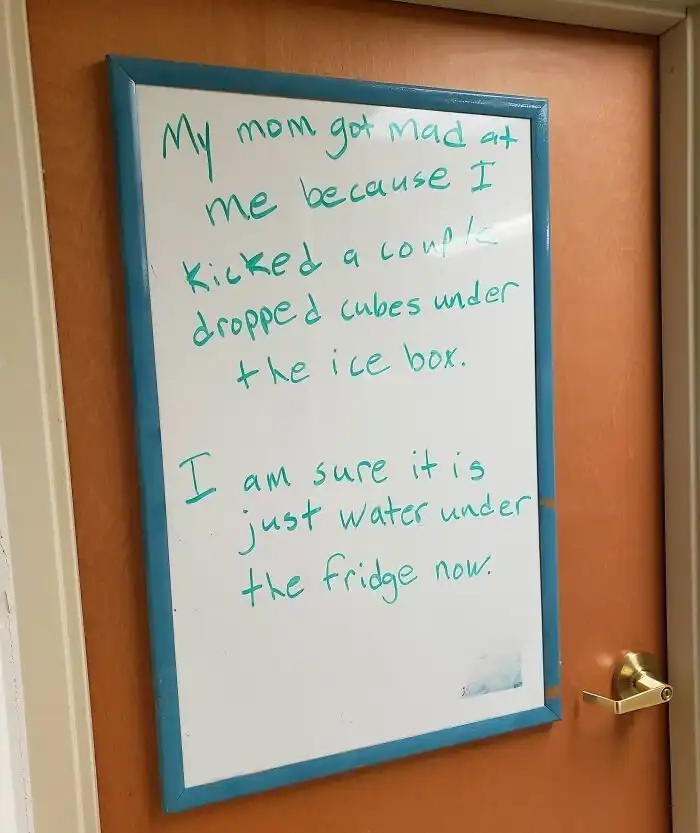 My mom got mad at
me because I
kicked a couple
dropped cubes under
the ice box.
I am sure it is
just water under
the fridge now.